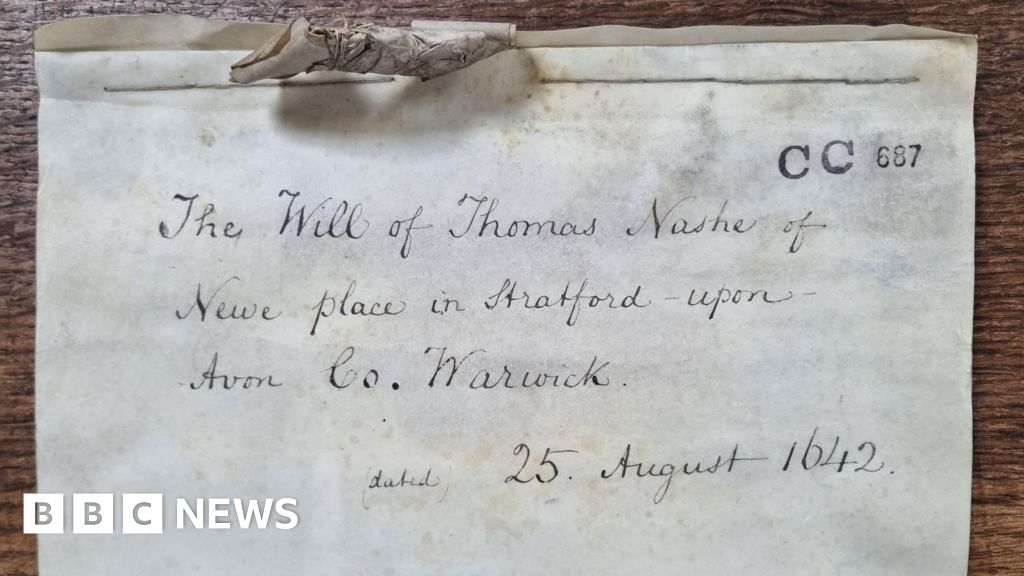 CC 687
The Will of Thomas Nashe of
Newe place in Stratford-upon-
Avon Co. Warwick.
(dated) 25. August 1642.
BBC NEWS